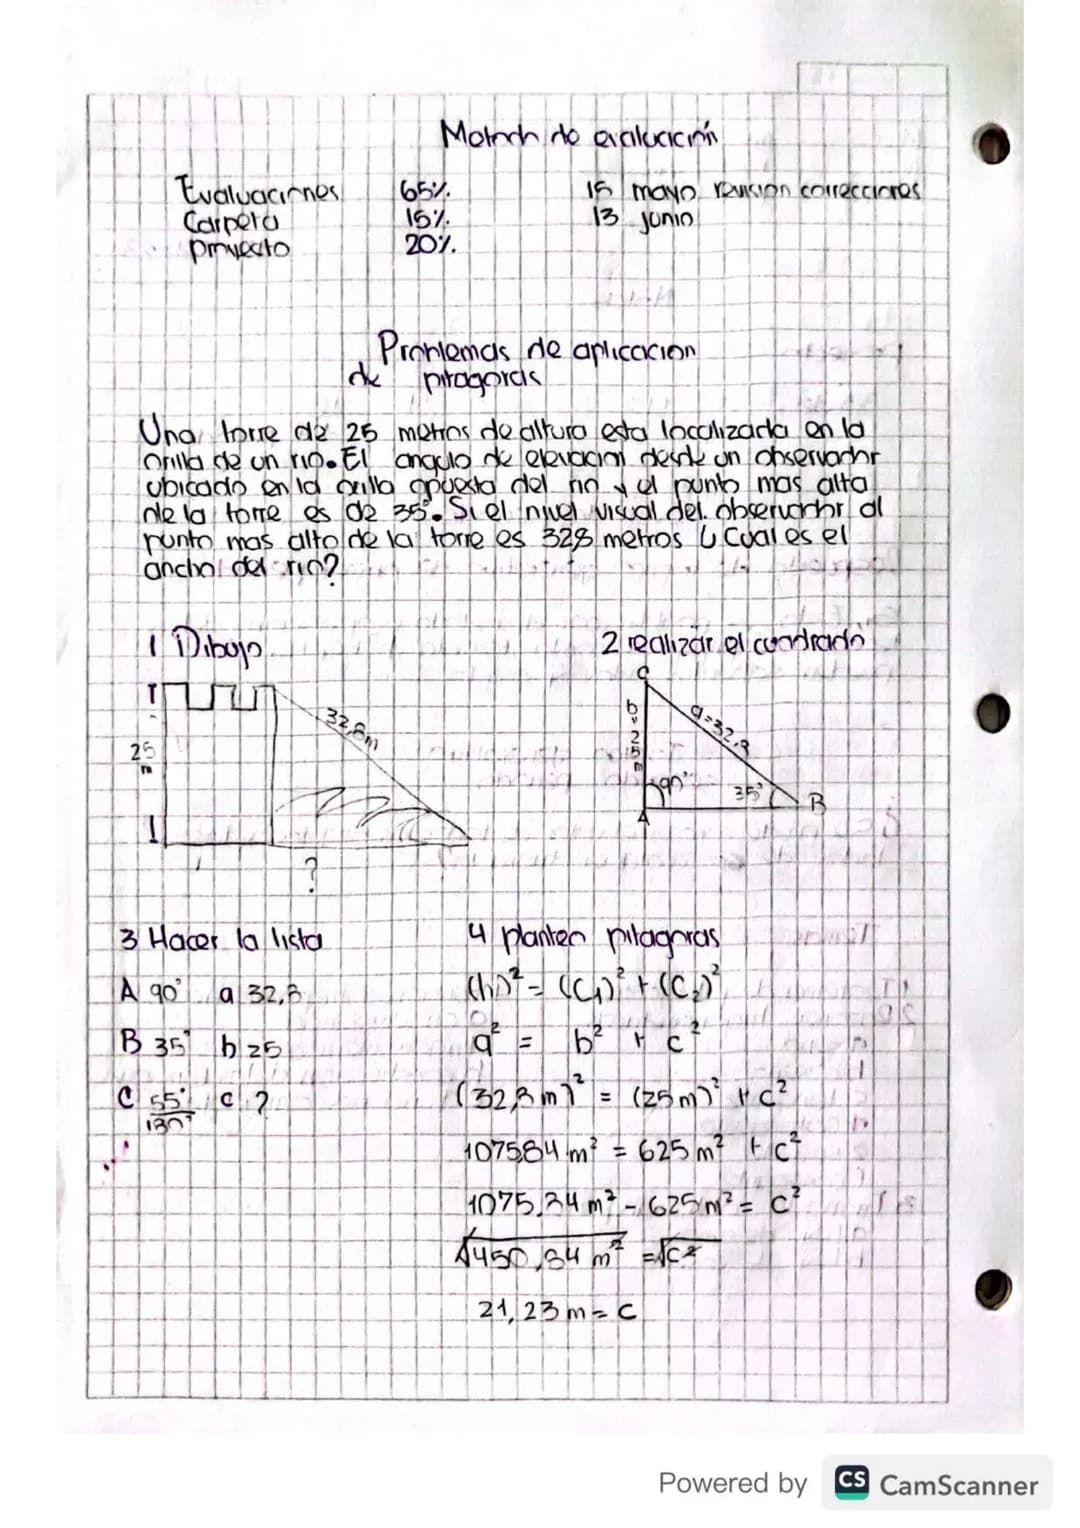 de evaluación
Evaluaciones 65%. 15 mayo revision correcciones
Carpeta 15%. 13 junio
proyecto 20%.
Problemas de aplicacion
de pitagoras
Una torre de 25 metros de altura esta localizada en la
orilla de un rio. El angulo de elevacion desde un observador
ubicado en la orilla opuesta del rio y el punto mas alta
de la torre es de 35°. Si el nivel visual del observador al
punto mas alto de la torre es 32,8 metros ¿Cual es el
ancho del rio?
1 Dibujo
2 realizar el cuadrado
25
m
32,8m
?
C
b=25m
a=32,8
90°
35°
A
B
3 Hacer la lista
4 planteo pitagoras
A 90° a 32,8
B 35° b 25
C 55° c ?
180°
(h)² = (C₁)² + (C₂)²
a² = b² + c²
(32,8 m)² = (25m)² + c²
1075,84 m² = 625 m² + c²
1075,84 m² - 625 m² = c²
√450,84 m² = √c²
21,23 m = c
Powered by CS CamScanner